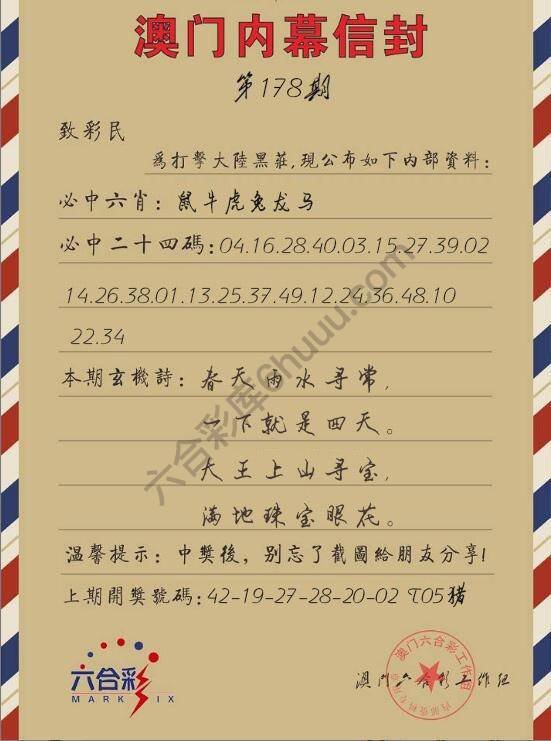 澳门内幕信封
第178期
致彩民
為打擊大陸黑莊,現公布如下内部資料:
必中六肖: 鼠牛虎兔龙马
必中二十四碼:04.16.28.40.03.15.27.39.02
14.26.38.01.13.25.37.49.12.24.36.48.10
22.34
本期玄機詩: 春天雨水寻常,
一下就是四天。
大王上山寻宝,
满地珠宝眼花。
温馨提示: 中獎後, 别忘了截圖給朋友分享!
上期開獎號碼:42-19-27-28-20-02 T05猪
六合彩
MARK SIX
澳门六合彩工作组
澳门六合彩工作组
六合彩库6huuu.com